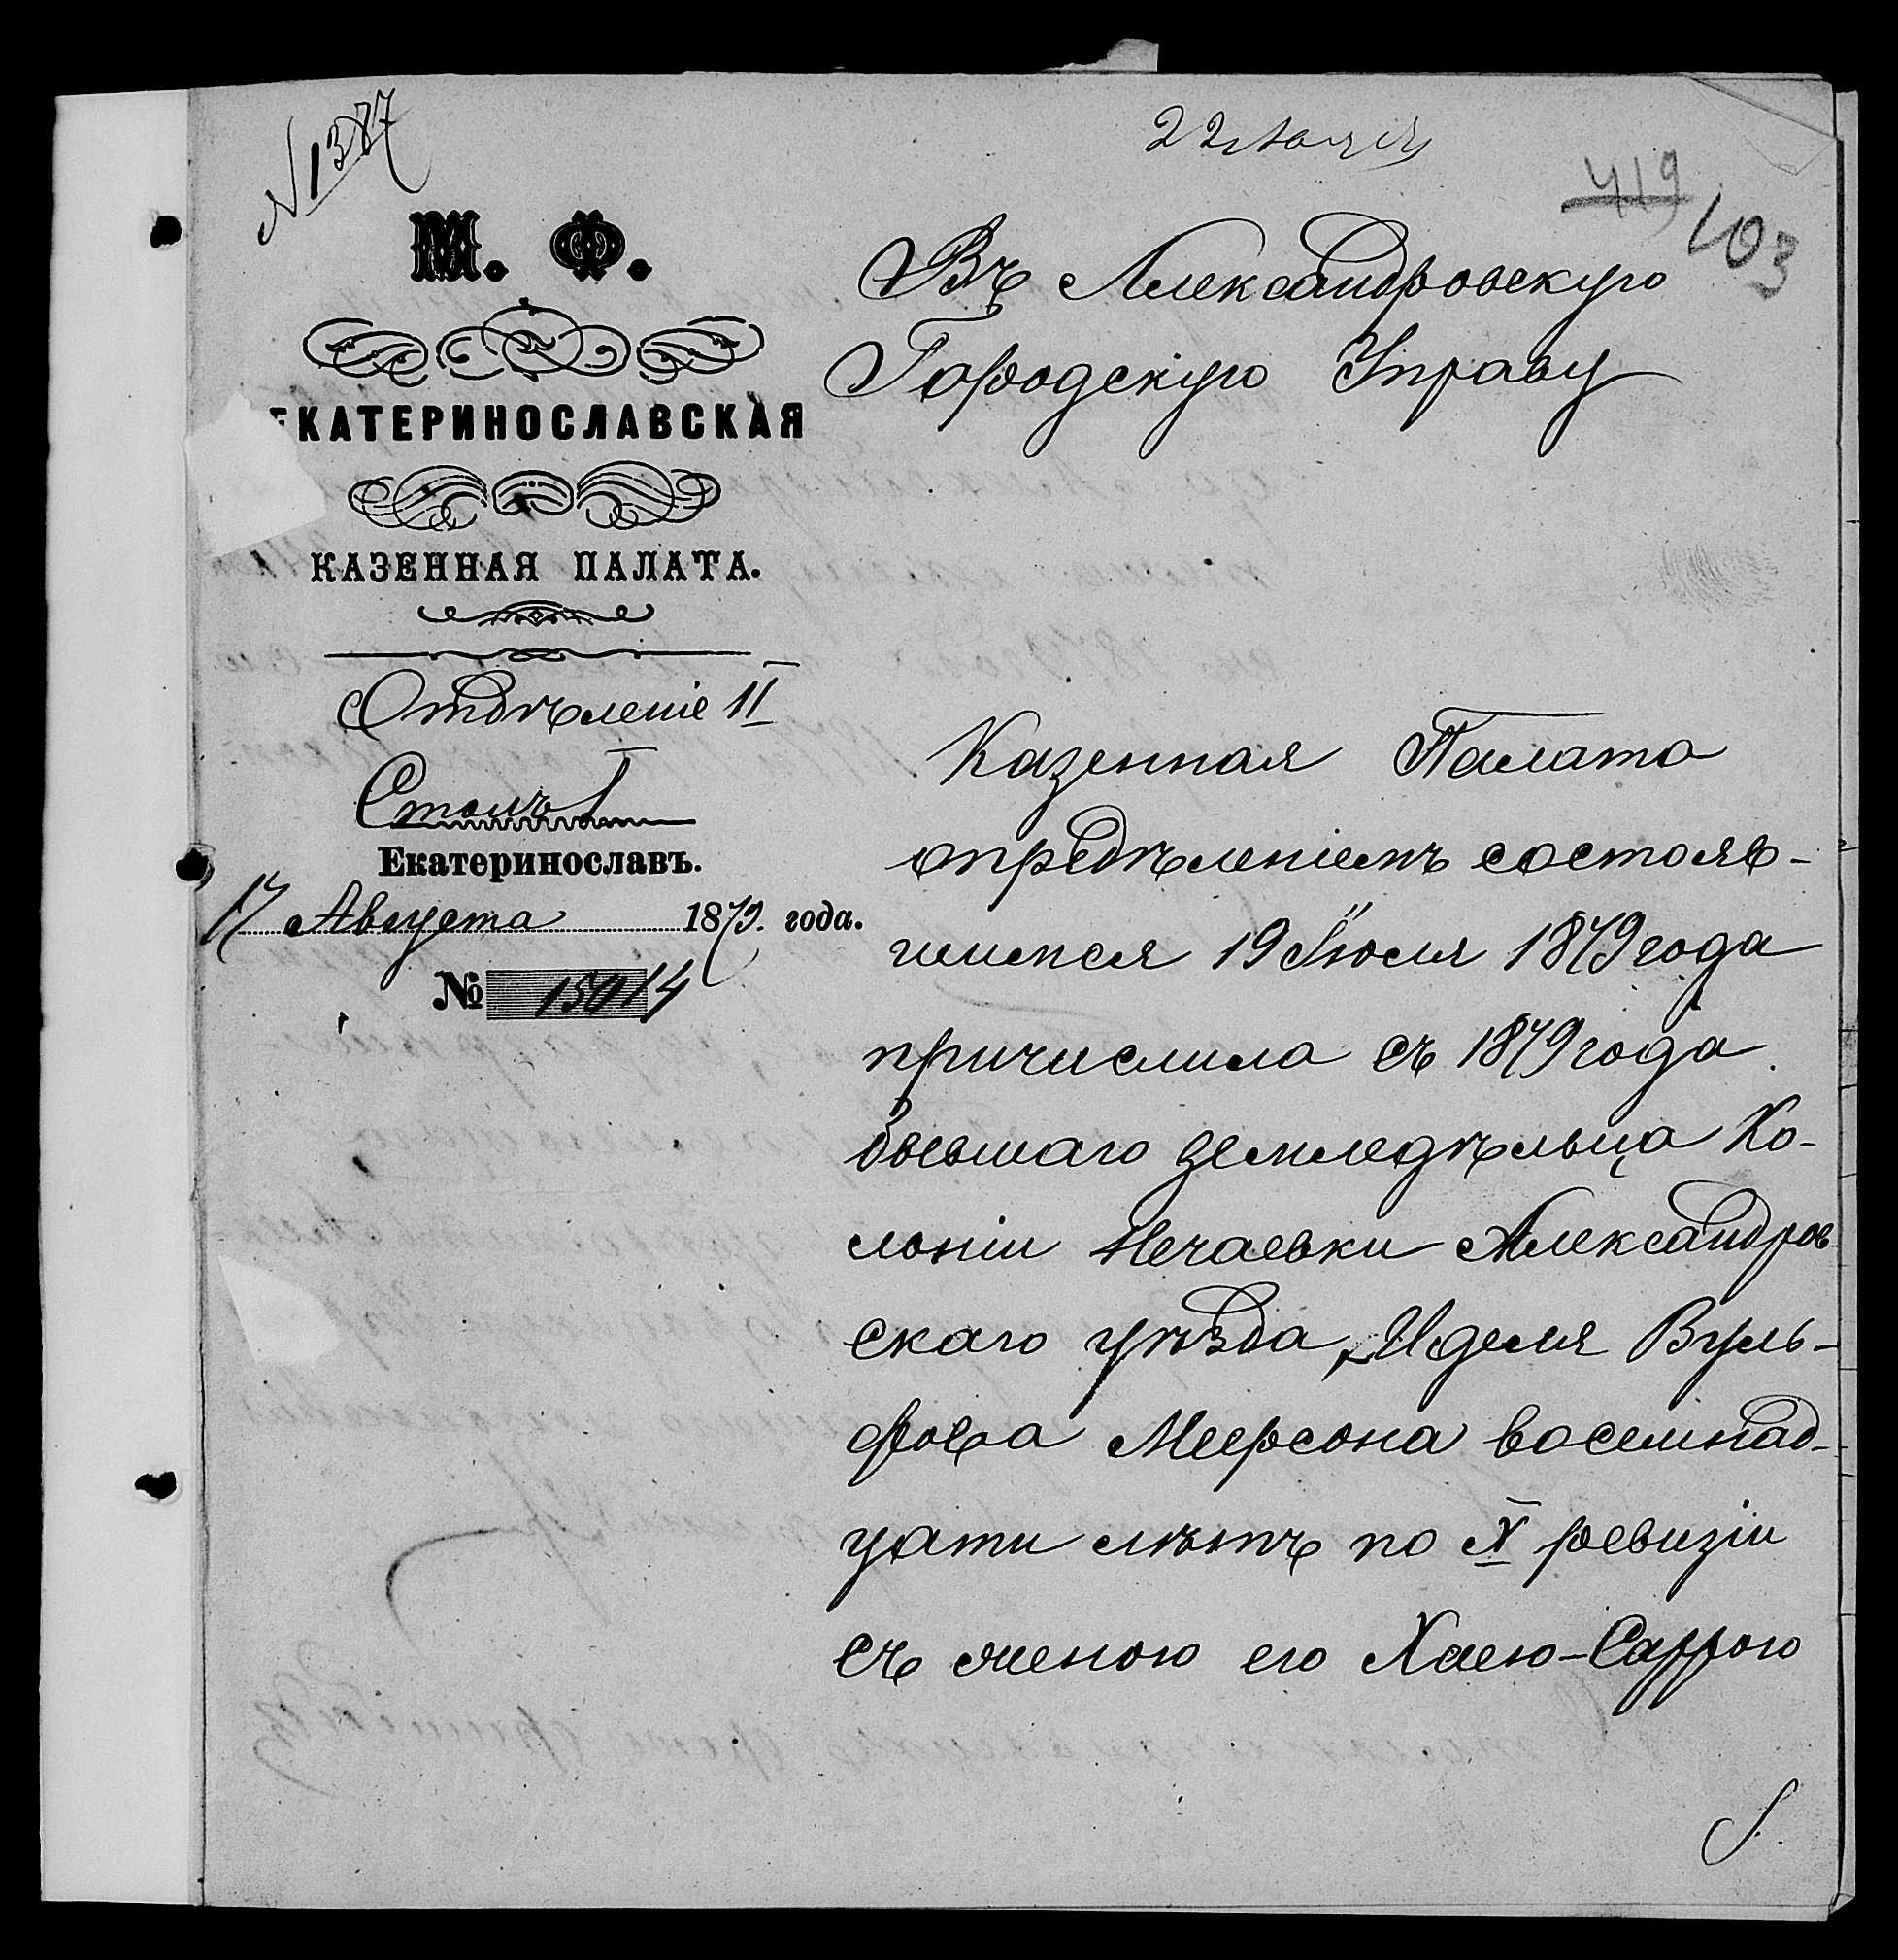 № 1377
419
103
М. Ф.
ЕКАТЕРИНОСЛАВСКАЯ
КАЗЕННАЯ ПАЛАТА.
Отдѣленіе II
Столъ I
Екатеринославъ.
17 Августа 1879. года.
№ 15014
Въ Александровскую
Городскую Управу
Казенная Палата
опредѣленіемъ состояв-
шимся 19 Іюля 1879 года
причислила съ 1879 года
бывшаго земледѣльца Ко-
лоніи Нечаевки Александров
скаго уѣзда, Иделя Вуль-
фова Меерсона восемнад-
цати лѣтъ по X ревизіи
съ женою его Хаею-Саррою